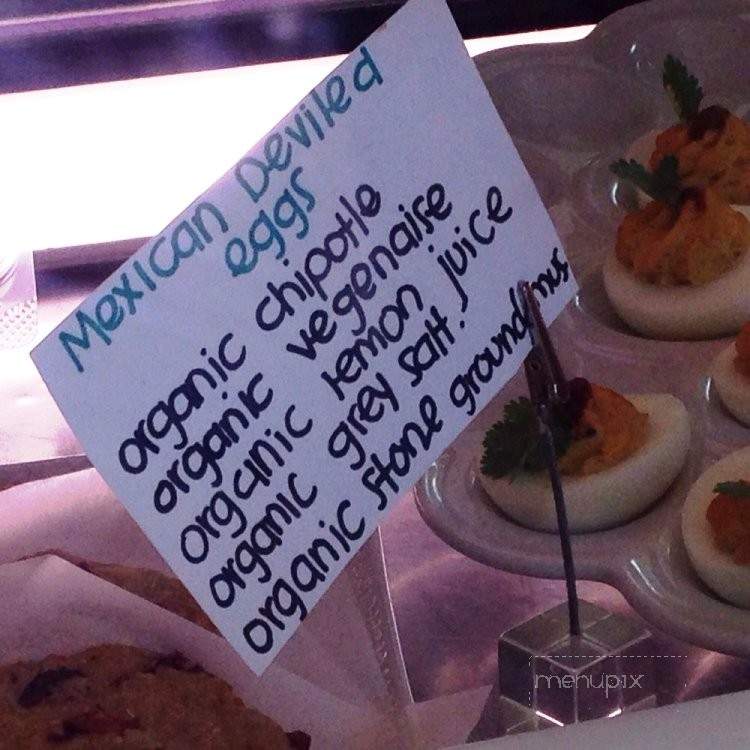 Mexican Deviled
eggs
organic chipotle
organic vegenaise
organic lemon juice
organic grey salt.
organic stone ground mus
menupix